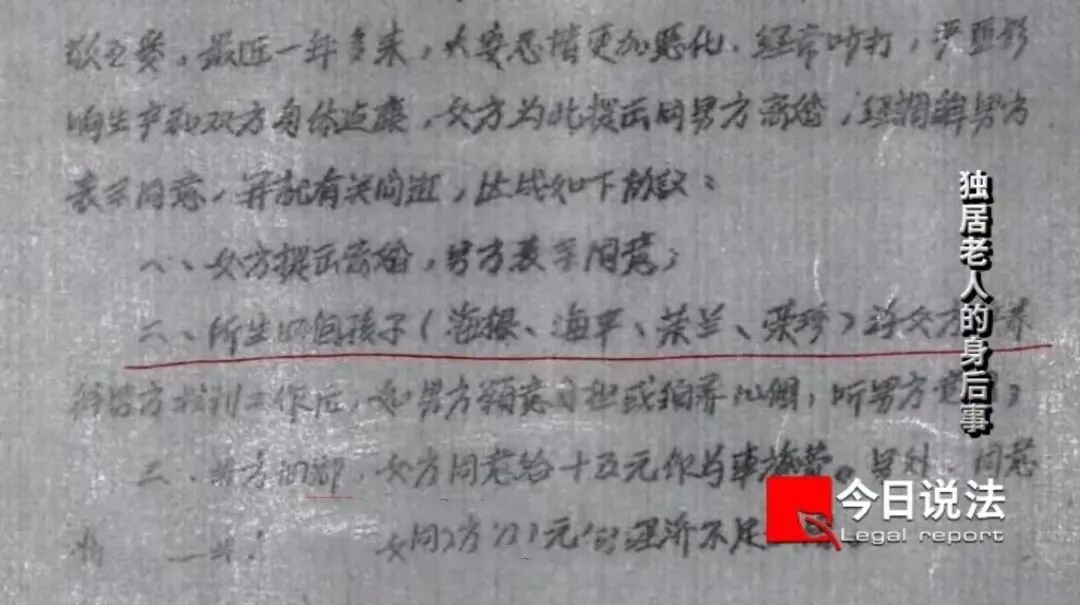 最近一年多来，夫妻感情更加恶化，经常吵打，严重影
响生产和双方身体健康，女方为此提出同男方离婚，经调解男方
表示同意，并就有关问题，达成如下协议：
一、女方提出离婚，男方表示同意；
二、所生四个孩子（海根、海平、荣兰、荣珍）
待男方找到工作后，如男方愿意
三、男方回 ，女方同意给十五元作为车旅费。另外，同意
元 经济不足
独居老人的身后事
今日说法
Legal report